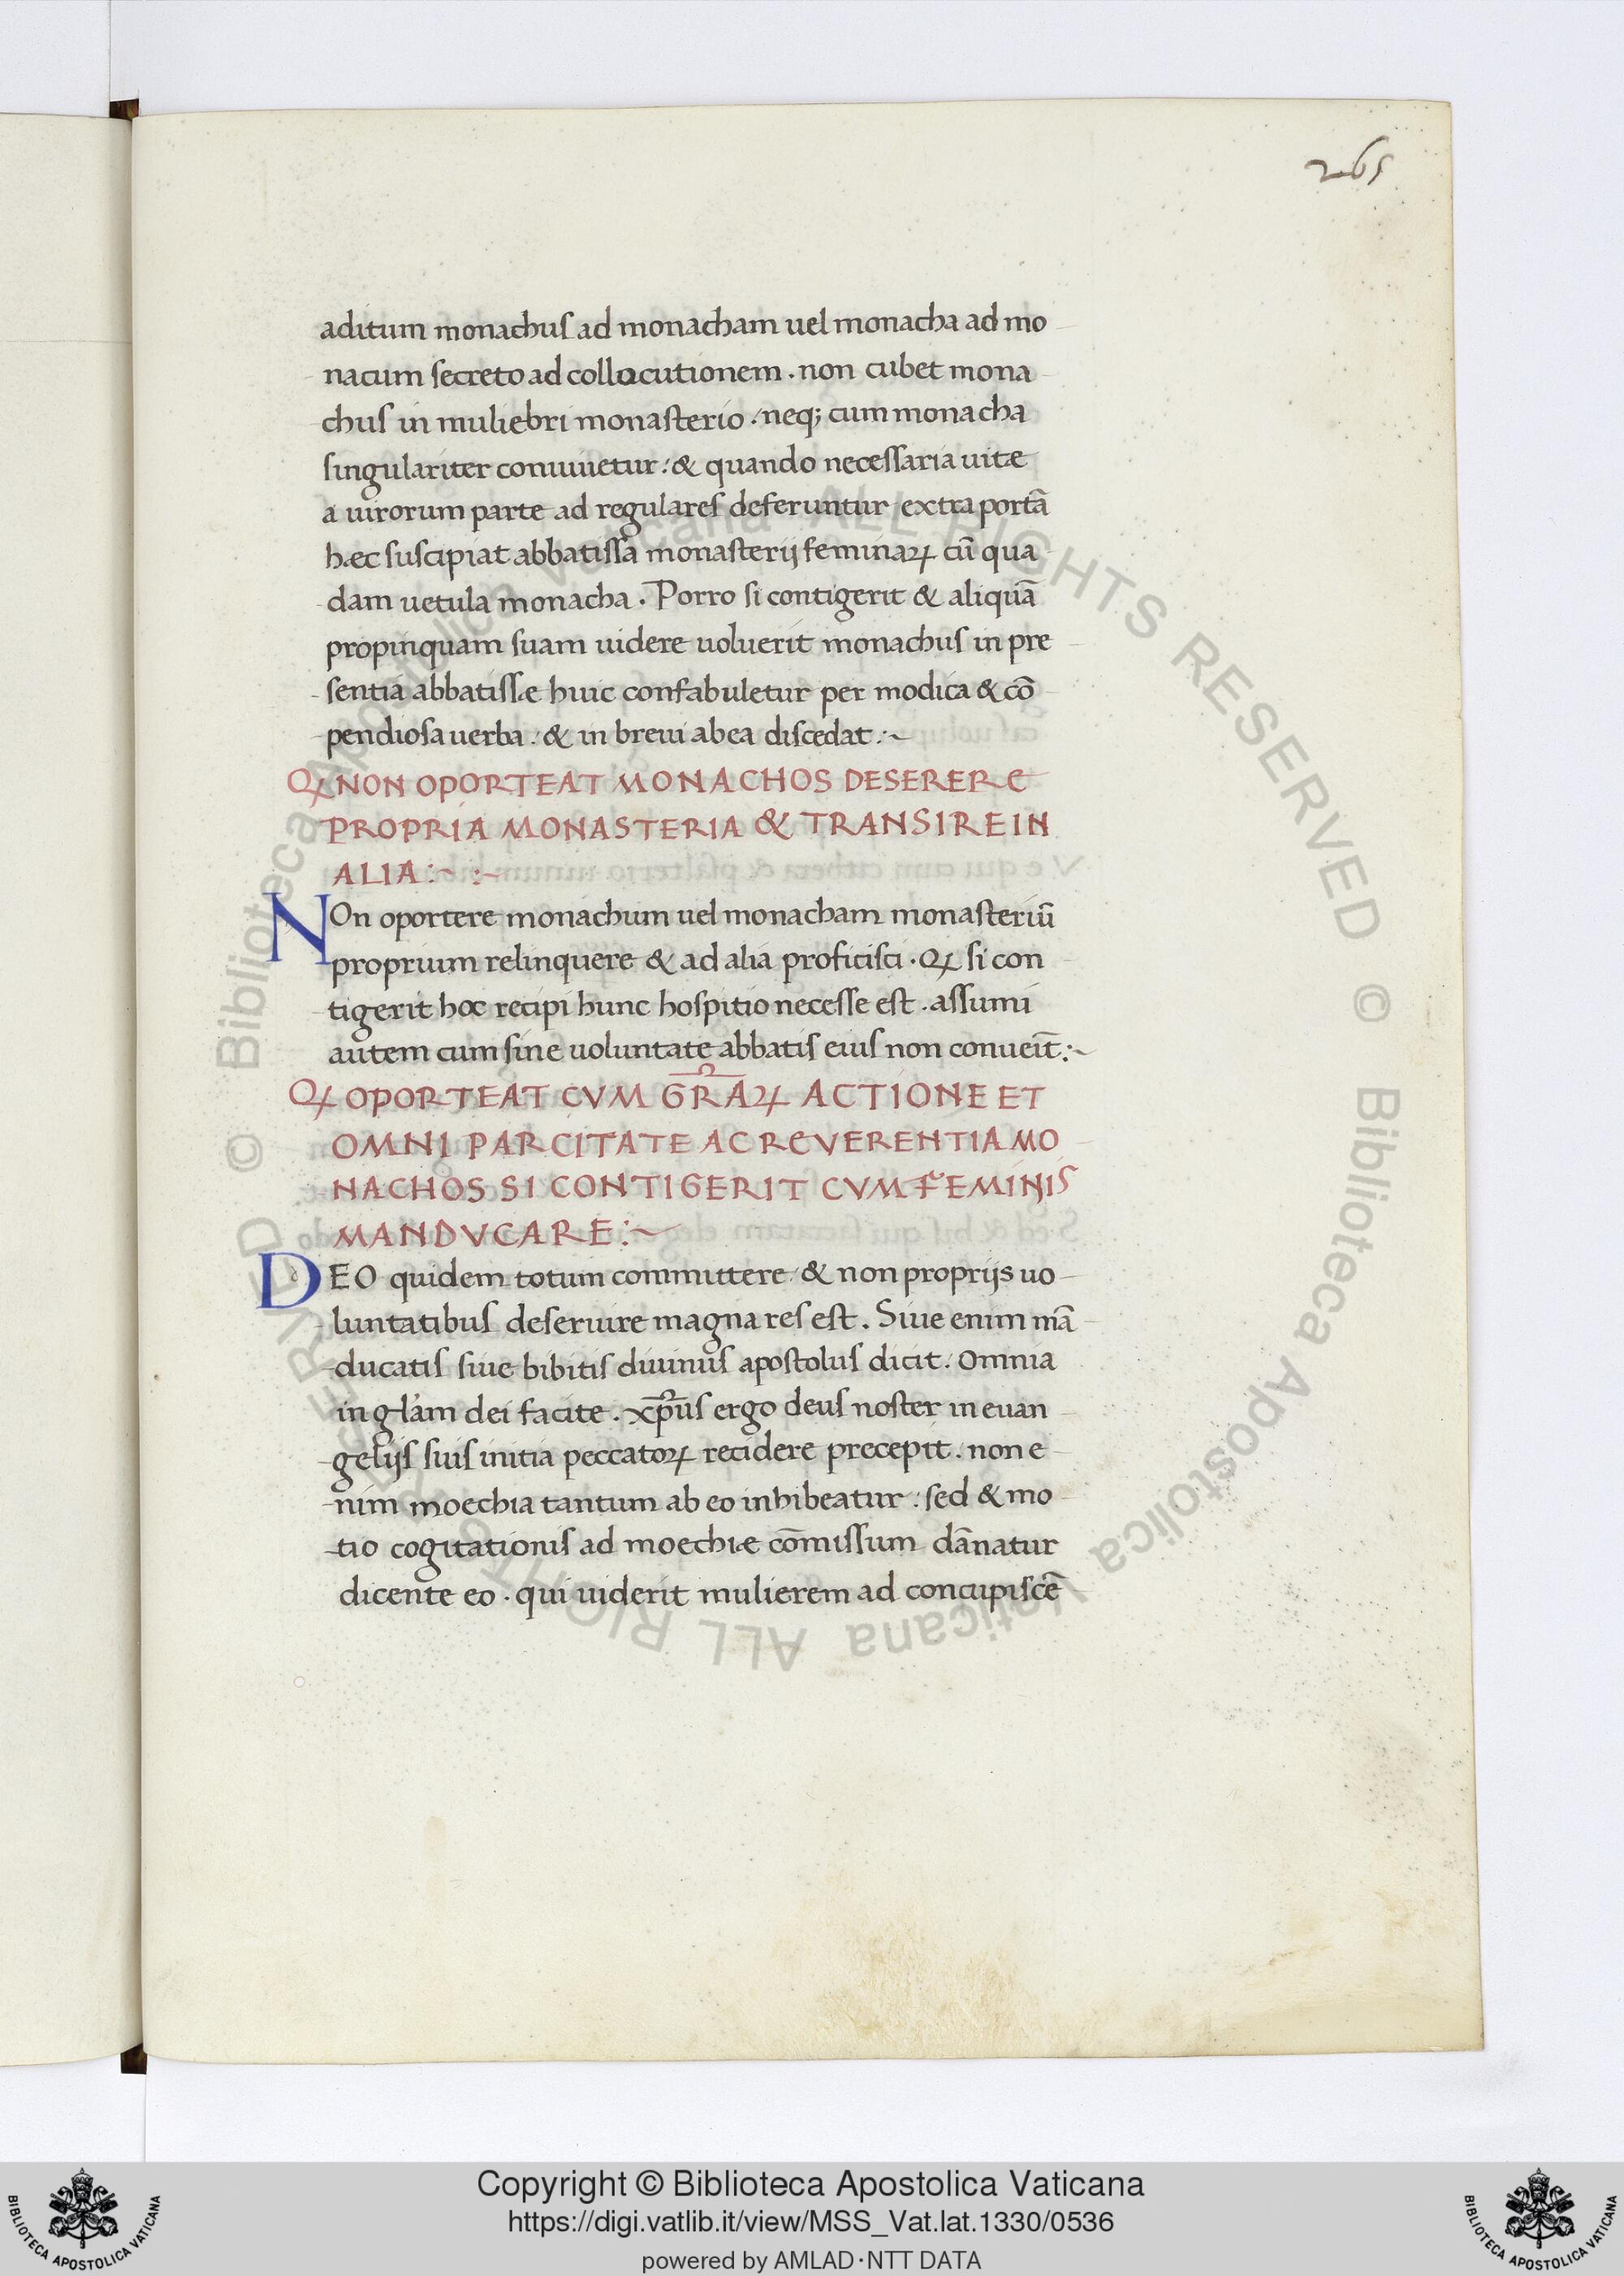 265
aditum monachus ad monacham uel monacha ad mo
nacum secreto ad collocutionem . non cubet mona
chus in muliebri monasterio . neq; cum monacha
singulariter conuiuetur : & quando necessaria uitæ
a uirorum parte ad regulares deferuntur extra portā
hæc suscipiat abbatissa monasterij feminaꝝ cū qua
dam uetula monacha . Porro si contigerit & aliquā
propinquam suam uidere uoluerit monachus in pre
sentia abbatissæ huic confabuletur per modica & cō
pendiosa uerba : & in breui ab ea discedat :~
Qꝭ NON OPORTEAT MONACHOS DESERERE
PROPRIA MONASTERIA & TRANSIRE IN
ALIA :~ :~
NOn oportere monachum uel monacham monasteriū
proprium relinquere & ad alia proficisci . Qꝭ si con
tigerit hoc recipi hunc hospitio necesse est . assumi
autem cum sine uoluntate abbatis eius non conueīt :~
Qꝭ OPORTEAT CVM GR̄AꝜ ACTIONE ET
OMNI PARCITATE AC REVERENTIA MO
NACHOS SI CONTIGERIT CVM FEMINIS
MANDVCARE :~
DEO quidem totum committere & non proprijs uo
luntatibus deseruire magna res est . Siue enim mā
ducatis siue bibitis diuinus apostolus dicit . Omnia
in gl'am dei facite . xp̄us ergo deus noster in euan
gelijs suis initia peccatoꝝ recidere precepit . non e
nim moechia tantum ab eo inhibeatur : sed & mo
tio cogitationis ad moechiæ cōmissum dānatur
dicente eo . qui uiderit mulierem ad concupiscē
© Biblioteca Apostolica Vaticana ALL RIGHTS RESERVED © Biblioteca Apostolica Vaticana ALL RIGHTS RESERVED
BIBLIOTECA APOSTOLICA VATICANA
Copyright © Biblioteca Apostolica Vaticana
https://digi.vatlib.it/view/MSS_Vat.lat.1330/0536
powered by AMLAD·NTT DATA
BIBLIOTECA APOSTOLICA VATICANA